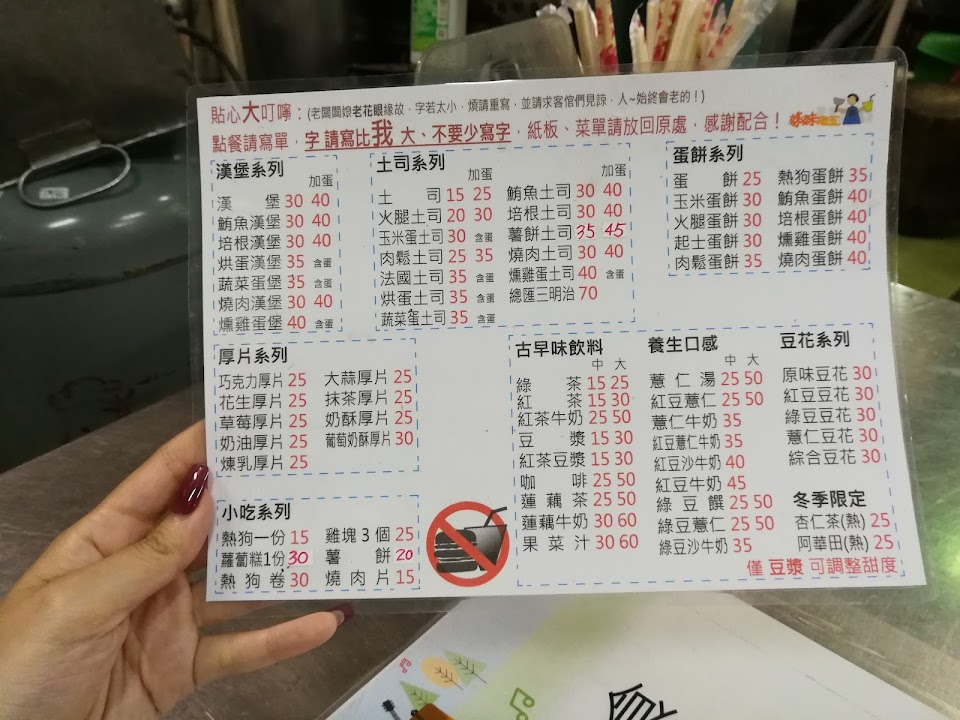 貼心大叮嚀：(老闆闆娘老花眼緣故，字若太小，煩請重寫，並請求客倌們見諒，人~始終會老的！)
點餐請寫單，字請寫比我 大、不要少寫字，紙板、菜單請放回原處，感謝配合！
漢堡系列
加蛋
漢堡 30 40
鮪魚漢堡 30 40
培根漢堡 30 40
烘蛋漢堡 35 含蛋
蔬菜蛋堡 35 含蛋
燒肉漢堡 30 40
燻雞蛋堡 40 含蛋
土司系列
加蛋
土司 15 25
火腿土司 20 30
玉米蛋土司 30 含蛋
肉鬆土司 25 35
法國土司 35 含蛋
烘蛋土司 35 含蛋
蔬菜蛋土司 35 含蛋
加蛋
鮪魚土司 30 40
培根土司 30 40
薯餅土司 35 45
燒肉土司 30 40
燻雞蛋土司 40 含蛋
總匯三明治 70
蛋餅系列
蛋餅 25
玉米蛋餅 30
火腿蛋餅 30
起士蛋餅 30
肉鬆蛋餅 35
熱狗蛋餅 35
鮪魚蛋餅 40
培根蛋餅 40
燻雞蛋餅 40
燒肉蛋餅 40
厚片系列
巧克力厚片 25
花生厚片 25
草莓厚片 25
奶油厚片 25
煉乳厚片 25
大蒜厚片 25
抹茶厚片 25
奶酥厚片 25
葡萄奶酥厚片 30
小吃系列
熱狗一份 15
蘿蔔糕1份 30
熱狗卷 30
雞塊3個 25
薯餅 20
燒肉片 15
古早味飲料
中 大
綠茶 15 25
紅茶 15 30
紅茶牛奶 25 50
豆漿 15 30
紅茶豆漿 15 30
咖啡 25 50
蓮藕茶 25 50
蓮藕牛奶 30 60
果菜汁 30 60
養生口感
中 大
薏仁湯 25 50
紅豆薏仁 25 50
薏仁牛奶 35
紅豆薏仁牛奶 35
紅豆沙牛奶 40
紅豆牛奶 45
綠豆饌 25 50
綠豆薏仁 25 50
綠豆沙牛奶 35
豆花系列
原味豆花 30
紅豆豆花 30
綠豆豆花 30
薏仁豆花 30
綜合豆花 30
冬季限定
杏仁茶(熱) 25
阿華田(熱) 25
僅 豆漿 可調整甜度